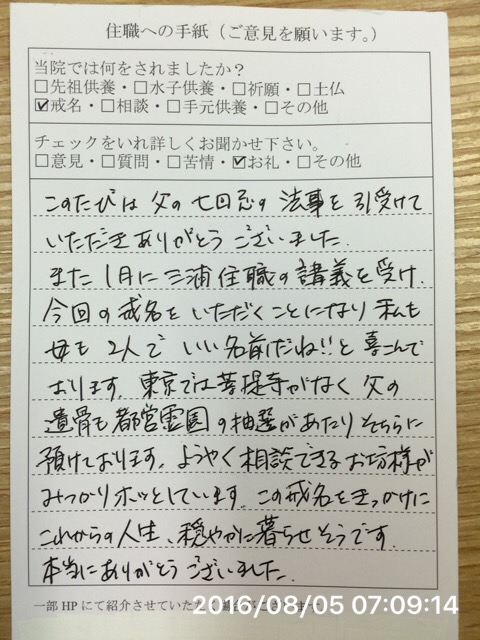 住職への手紙（ご意見を願います。）
当院では何をされましたか？
□先祖供養・□水子供養・□祈願・□土仏
☑戒名・□相談・□手元供養・□その他
チェックをいれ詳しくお聞かせ下さい。
□意見・□質問・□苦情・☑お礼・□その他
このたびは 父の七回忌の 法事を引受けて
いただきありがとう ございました.
また 1月に三浦住職の講義を受け.
今回の戒名を いただくことになり 私も
母も 2人で いい名前だね!!と 喜こんで
おります. 東京では菩提寺がなく 父の
遺骨も都営霊園の抽選があたり そちらに
預けております. ようやく相談できるお坊様が
みつかりホッとしています. この戒名をきっかけに
これからの人生、穏やかに暮らせそうです.
本当にありがとう ございました.
一部 HP にて紹介させていただく
2016/08/05 07:09:14